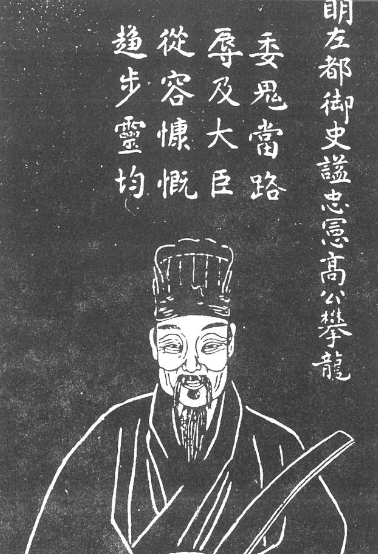 明左都御史謚忠憲髙公攀龍
委鬼當路
辱及大臣
從容慷慨
趍步靈均